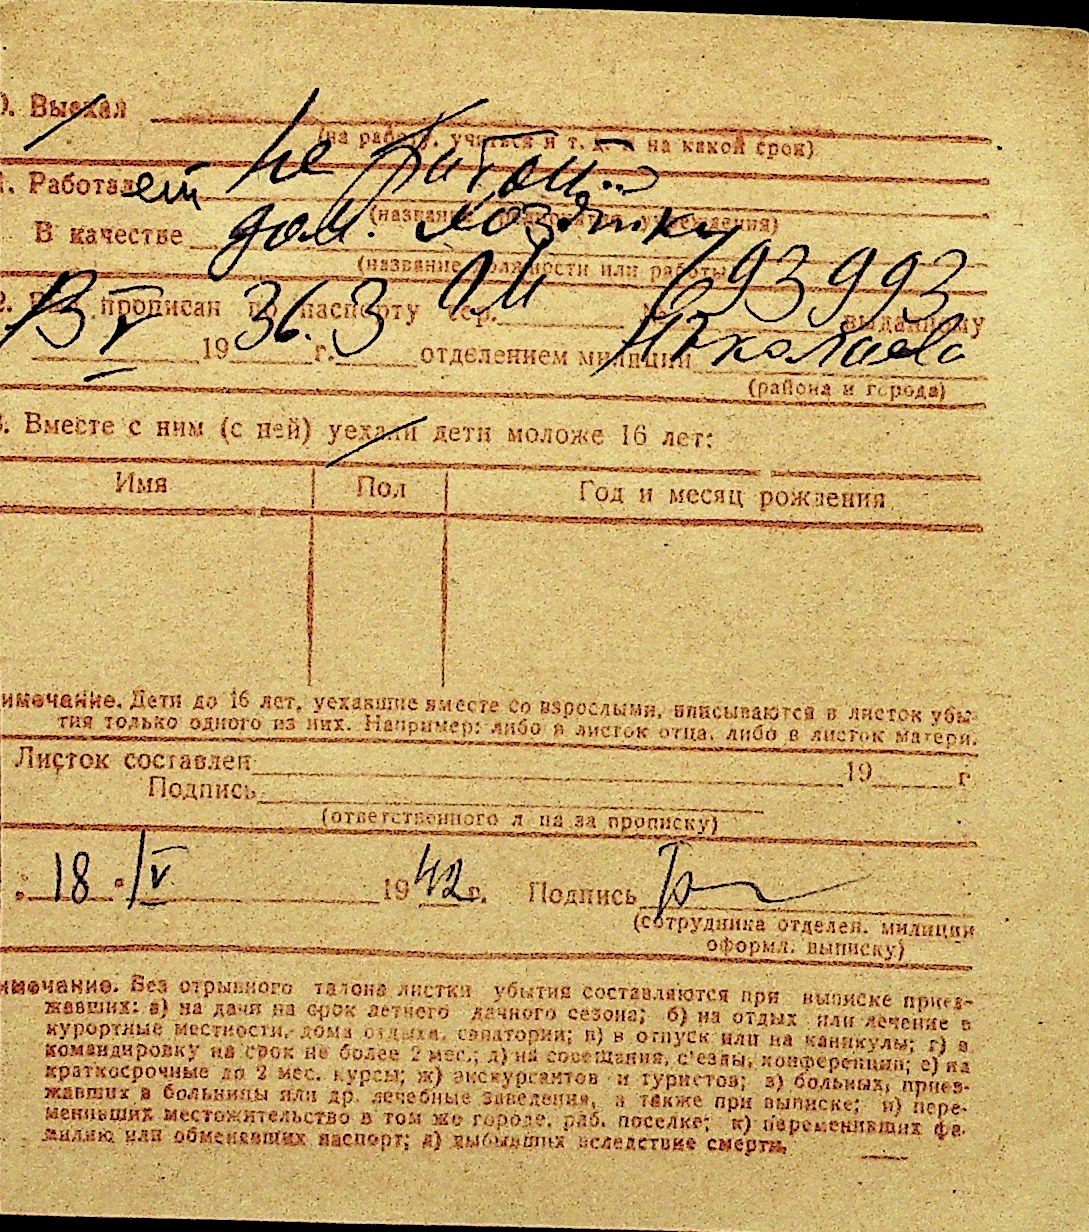 . Выехал
(на работу, учиться и т. д. и на какой срок)
. Работал ет не работ...
(название предприятия, учреждения)
В качестве дом. хозяйки
(название должности или работы)
. Был прописан по паспорту сер. № 693993 выданному
V 1936 г. 3 отделением милиции Николаева
(района и города)
. Вместе с ним (с ней) уехали дети моложе 16 лет:
Имя Пол Год и месяц рождения
имечание. Дети до 16 лет, уехавшие вместе со взрослыми, вписываются в листок убы-
тия только одного из них. Например: либо в листок отца, либо в листок матери.
Листок составлен 19 г
Подпись
(ответственного л ца за прописку)
. 18 . IV 1942 г. Подпись
(сотрудника отделен. милиции
оформл. выписку)
имечание. Без отрывного талона листки убытия составляются при выписке приез-
жавших: а) на дачи на срок летнего дачного сезона; б) на отдых или лечение в
курортные местности, дома отдыха, санатории; в) в отпуск или на каникулы; г) в
командировку на срок не более 2 мес.; д) на совещания, с'езды, конференции; е) на
краткосрочные до 2 мес. курсы; ж) экскурсантов и туристов; з) больных, приез-
жавших в больницы или др. лечебные заведения, а также при выписке; и) пере-
менивших местожительство в том же городе, раб. поселке; к) переменивших фа-
милию или обменявших паспорт; л) выбывших вследствие смерти.